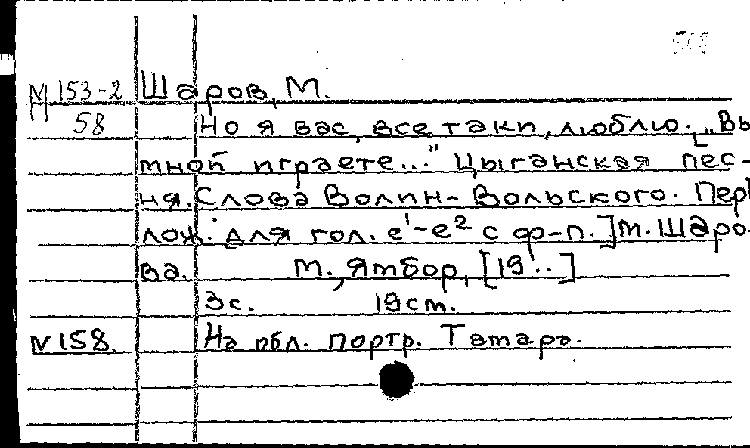 М 153-2 Шаров, М.
58 Но я вас, все таки, люблю. [„Вы
мной играете..." Цыганская пес-
ня. Слова Волин-Вольского. Пер
лож. для гол. e¹-e² с ф-п.] М. Шаро-
ва. М., Ямбор, [19..]
3с. 19см.
N 158. На обл. портр. Татара.